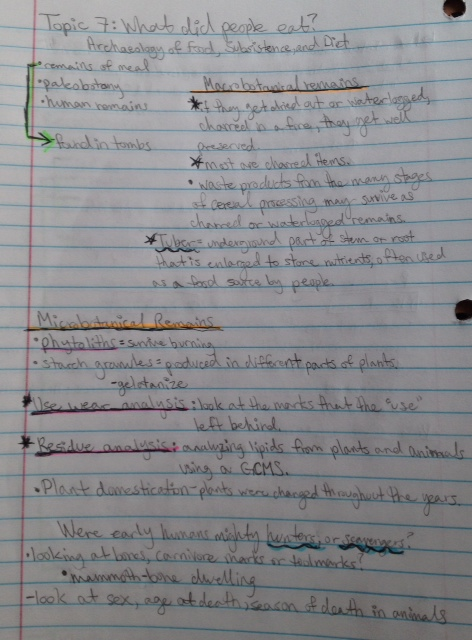 Topic 7: What did people eat?
Archaeology of Food, Subsistence, and Diet
• remains of meal
• paleobotany
• human remains
→ found in tombs
Macrobotanical remains
* if they get dried out or waterlogged,
charred in a fire, they get well
preserved
* most are charred items.
• waste products from the many stages
of cereal processing may survive as
charred or waterlogged remains.
* Tuber = underground part of stem or root
that is enlarged to store nutrients, often used
as a food source by people.
Microbotanical Remains
• phytoliths = survive burning
• starch granules = produced in different parts of plants.
- gelatanize
* Use wear analysis: look at the marks that the "use"
left behind.
* Residue analysis: analyzing lipids from plants and animals
using a GCMS.
• Plant domestication - plants were changed throughout the years.
Were early humans mighty hunters, or scavengers?
• looking at bones, carnivore marks or toolmarks?
• mammoth-bone dwelling
- look at sex, age at death, season of death in animals